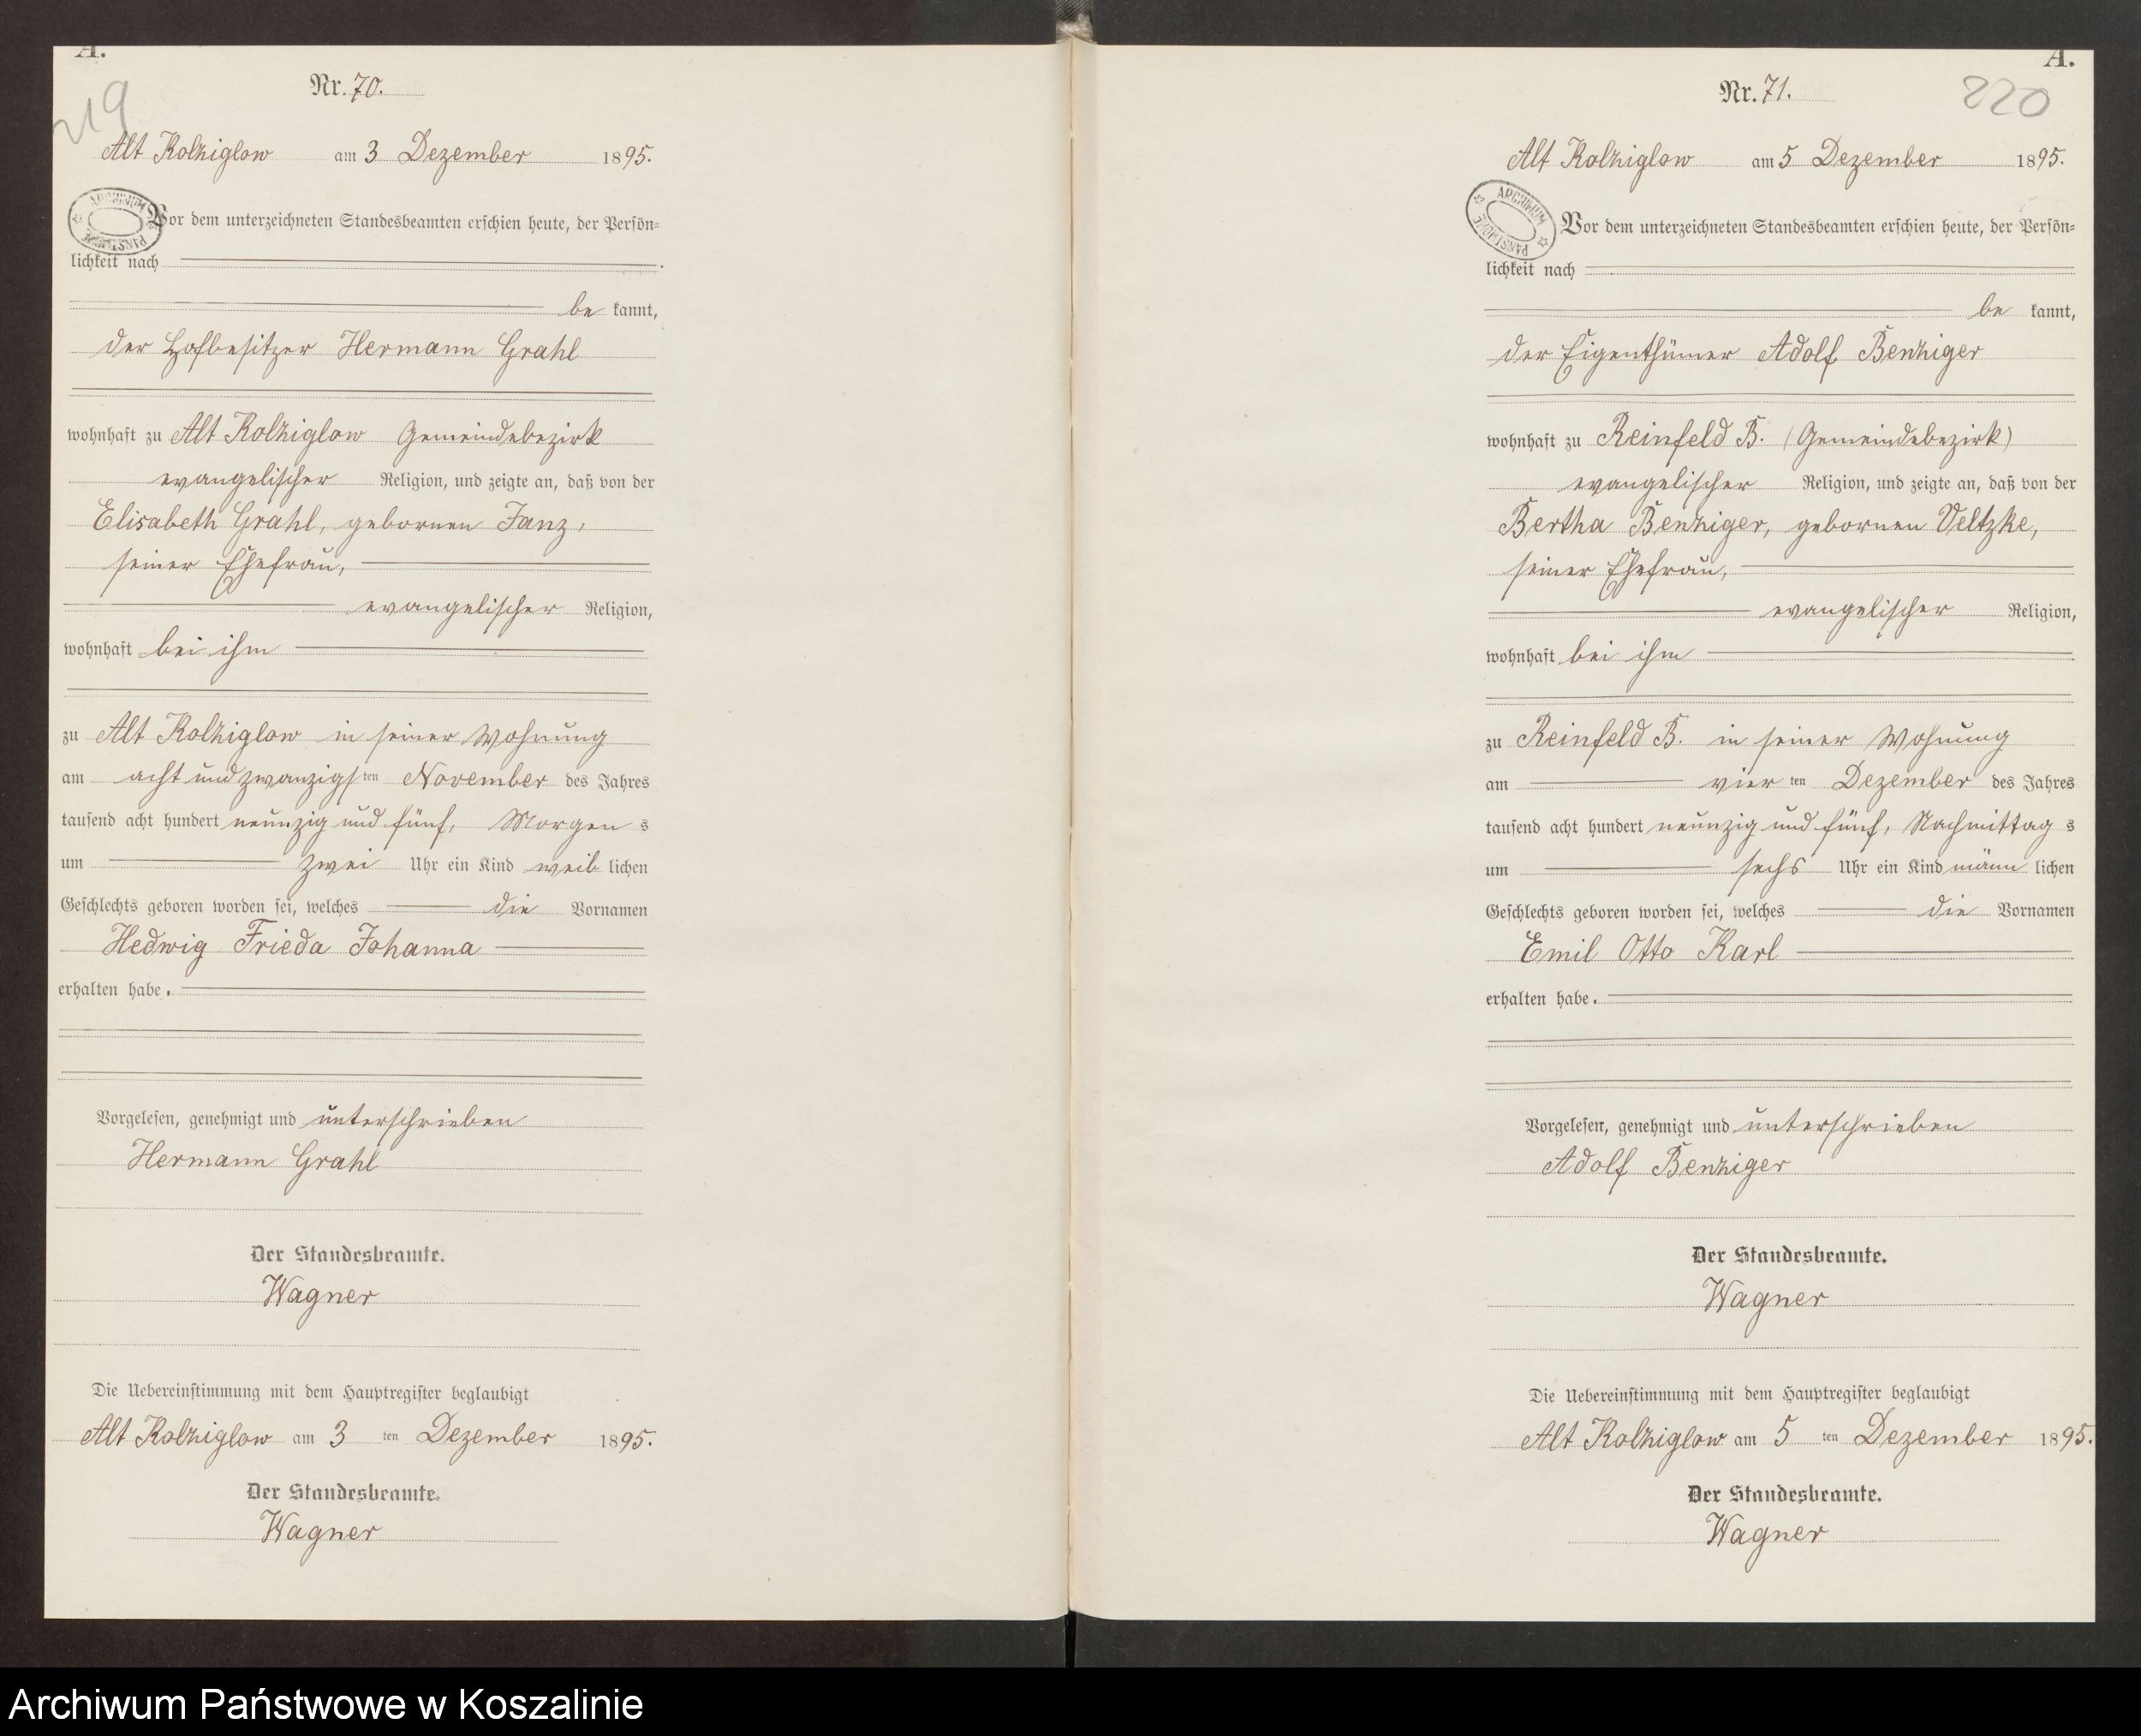 A.
219
Nr. 70.
Alt Kolziglow am 3 Dezember 1895.
ARCHIWUM PAŃSTWOWE
Vor dem unterzeichneten Standesbeamten erschien heute, der Persön=
lichkeit nach
be kannt,
der Hofbesitzer Hermann Grahl
wohnhaft zu Alt Kolziglow Gemeindebezirk
evangelischer Religion, und zeigte an, daß von der
Elisabeth Grahl, gebornen Janz,
seiner Ehefrau,
evangelischer Religion,
wohnhaft bei ihm
zu Alt Kolziglow in seiner Wohnung
am acht und zwanzigsten November des Jahres
tausend acht hundert neunzig und fünf, Morgens
um zwei Uhr ein Kind weiblichen
Geschlechts geboren worden sei, welches die Vornamen
Hedwig Frieda Johanna
erhalten habe.
Vorgelesen, genehmigt und unterschrieben
Hermann Grahl
Der Standesbeamte.
Wagner
Die Uebereinstimmung mit dem Hauptregister beglaubigt
Alt Kolziglow am 3 ten Dezember 1895.
Der Standesbeamte.
Wagner
A.
220
Nr. 71.
Alt Kolziglow am 5 Dezember 1895.
ARCHIWUM PAŃSTWOWE
Vor dem unterzeichneten Standesbeamten erschien heute, der Persön=
lichkeit nach
be kannt,
der Eigenthümer Adolf Benziger
wohnhaft zu Reinfeld B. (Gemeindebezirk)
evangelischer Religion, und zeigte an, daß von der
Bertha Benziger, gebornen Veltzke,
seiner Ehefrau,
evangelischer Religion,
wohnhaft bei ihm
zu Reinfeld B. in seiner Wohnung
am vier ten Dezember des Jahres
tausend acht hundert neunzig und fünf, Nachmittags
um sechs Uhr ein Kind männ lichen
Geschlechts geboren worden sei, welches die Vornamen
Emil Otto Karl
erhalten habe.
Vorgelesen, genehmigt und unterschrieben
Adolf Benziger
Der Standesbeamte.
Wagner
Die Uebereinstimmung mit dem Hauptregister beglaubigt
Alt Kolziglow am 5 ten Dezember 1895.
Der Standesbeamte.
Wagner
Archiwum Państwowe w Koszalinie